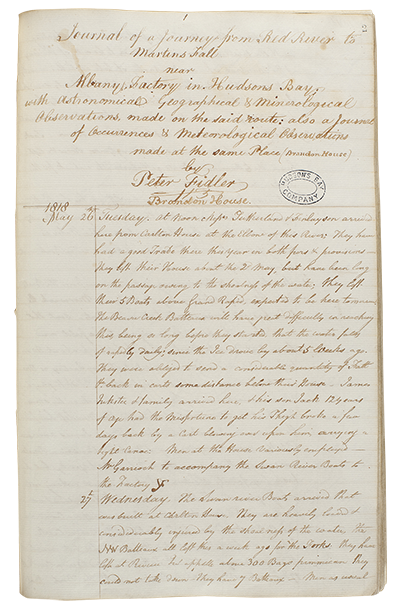 2
Journal of a Journey from Red River to
Martins Fall
near
Albany Factory in Hudsons Bay,
with Astronomical Geographical & Minerological
Observations, made on the said route: also a Journal
of Occurrences & Meteorological Observations
made at the same Place (Brandon House)
by
Peter Fidler
Brandon House.
HUDSON'S BAY
COMPANY
1818
May 26 Tuesday. At Noon Messrs Sutherland & Finlayson arrived
here from Carlton House at the Elbow of this River; They have
had a good Trade there this year in both furs & provisions—
they left their House about the 2d May, but have been long
on the passage owing to the shortness of the water, they left
their 5 Boats above Grand Rapid, expected to be here tomorrow
The Beaver Creek Batteaux will have great difficulty in reaching
this being so long before they started that the water falls
rapidly daily; since the Ice drove by about 5 Weeks ago.
They were obliged to send a considerable quantity of Fatt
&c back in carts some distance below their House — James
Inkster & family arrived here, & his son Jack 12 years
of age had the Misfortune to get his Thigh broke a few
days back by a Cart
light Canoe. Men at the House variously employed —
Mr Garrioch to accompany the Swan River Boats to
the Factory
27 Wednesday. The Swan river Boats arrived that
was built at Carlton House. They are heavily loaded &
considerably injured by the shoalness of the water, the
NW Batteaux all left this a week ago for the Forks. they have
left at Riviere above 300 Bags pemmican they
could not take down they have 7 Batteaux — Men as usual